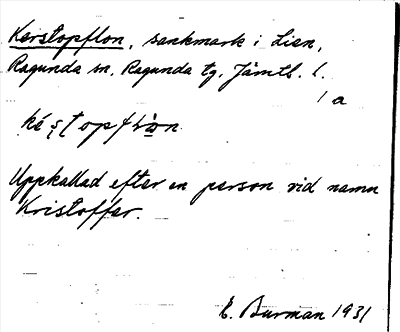 Kerstopflon, sankmark i Lien,
Ragunda sn, Ragunda tg. Jämtl. l.
1 a
Uppkallad efter en person vid namn
Kristoffer.
E. Burman 1931